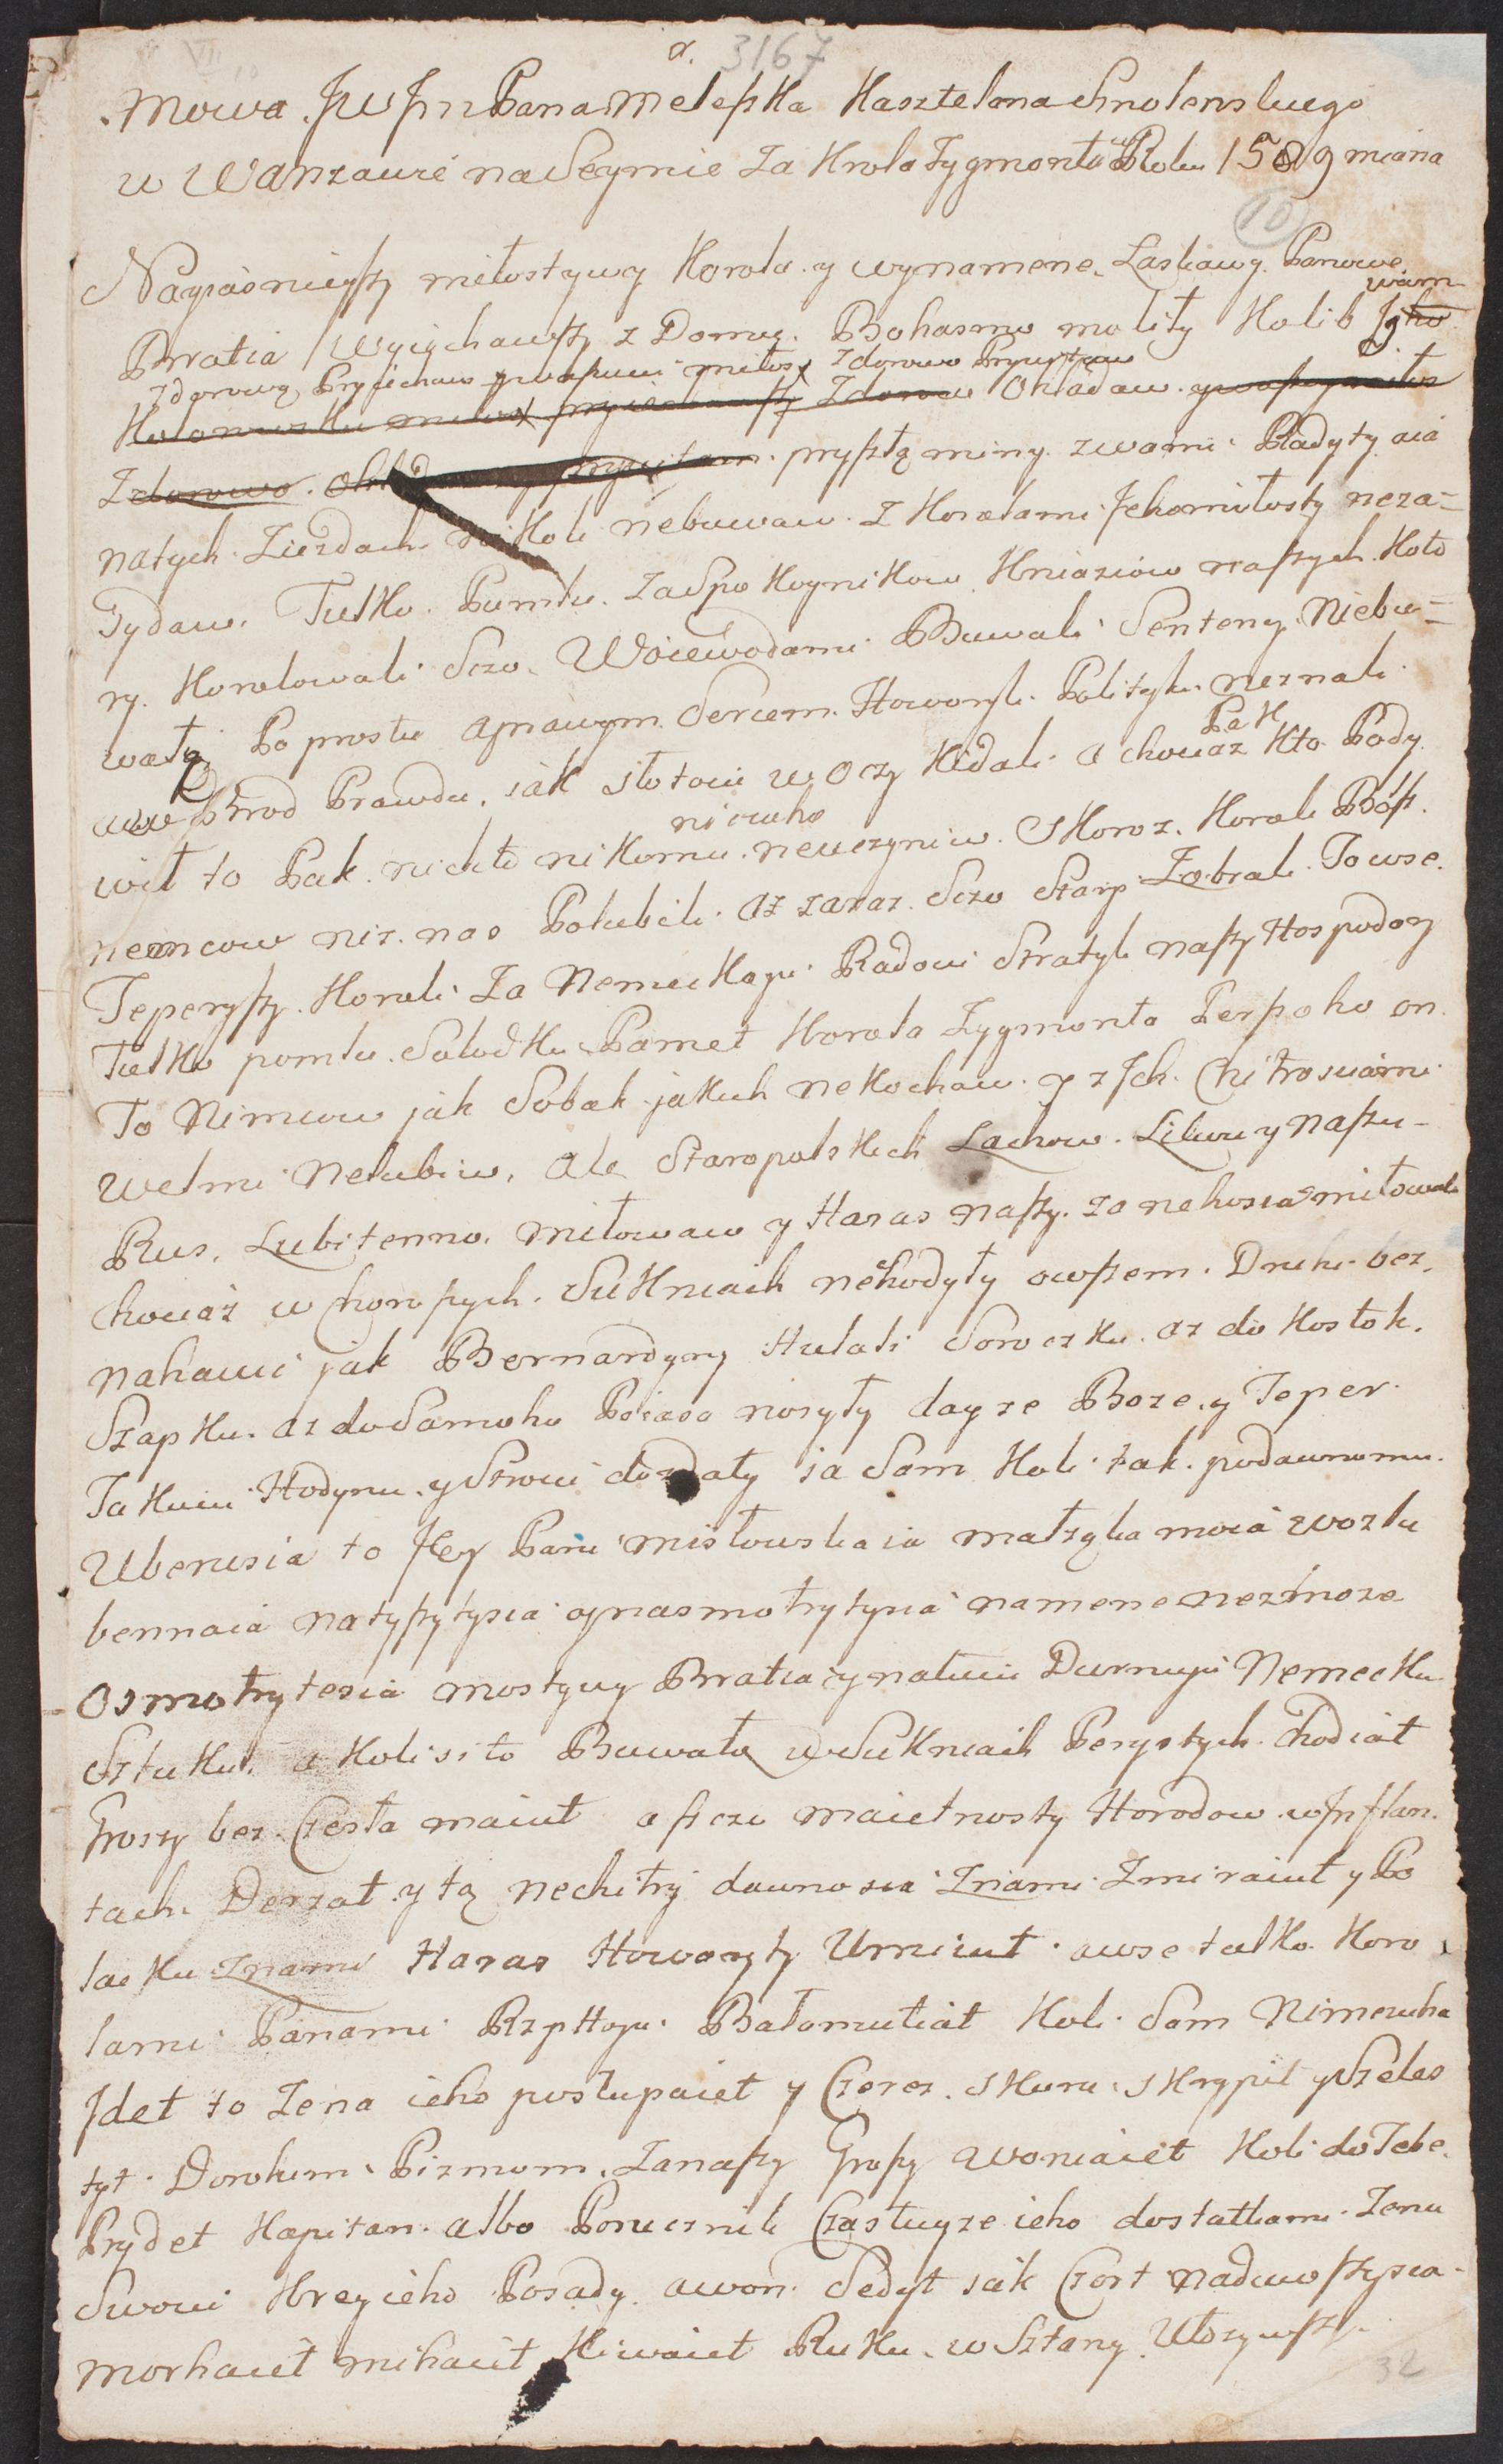 α. 3167
Mowa JW Jn Pana Meleszka Kasztelana Smolenskiego
w Warszawie na Seymie Za Krola Zygmonta w Roku 1589 miana
10
Nayiasnieyszy miłostywy Korolu y wynamene Łaskawy Panowe
Bratia Wyjychawszy z Domu Bohasmo molity Kolib wam
zdorowy Pryiechaw y waszui miłos Zdorowo Prywytaw
Okładaw
pryszłą miny z wami Radyty aia
natych Ziezdach nikoli nebuwaw z Korolami Jehomiłosty neza=
Sydaw. Tulko Pumtu za Spokoynikow Kniaziow naszych Koto
ry Korolowali Szo Woiewodami Buwali Senteny Niebu=
wały Po prostu aprawym Sercem Howoryli Polityki neznali
Pak
awu brod Prawdu, iak słotoiu w Oczy Kidali a chouaz Kto Pady
nicuho
wit to Pak nichto nikomu neuczyniw. Skoroz Korali Bosz.
nemcow niz nas Polubili az zaraz Szo Stary Zobrali To wse.
Teperyszy Korali Za Nemeckoju Radoiu Stratyli naszy Hospodary
Tulko pomlu Sołodku Pamet Korola Zygmonta Perszoho on
To Nimcow jak Sobak jakich nekochaw y z Jch Chitrosciami
Welmi Nelubiw, Ale Staropolskich Lachow Litwu y Naszu-
Rus, Lubitenno, miłowaw y Haras naszy za nehosia miłowali
chouaż w choroszych Sukniach nechodyły owszem Druhi bez,
nahawic jak Bernardyny Hulali Soroczku az do Kostok,
Szapku az do Samoho Poiasa nosyły day ze Boze y Teper
Takuiu Hodynu y Stroiu dozdaty ia Sam Koli tak podawnomu
Uberusia to Jey Pani mistowskaia małzyka moia wozlu
bennaia natyszytysia ynasmotrytysia namene nezmoze
Osmotrytesia mostywy Bratia y natuiu Durnuju Nemecku
Sztuku, a Kolisito Buwało w Sukniach Perystych chodiat
Groszy bez Czesła maiut a szczu maietnosty Horodow w Jnflan.
tach Derzat y tą nechitry dawno sia Znami Zmiraiut y Po
lacku Znami Haras Howoryty Umiiut a wse tulko Koro
lami Panami Rzptoju Bałamutiat Koli Sam Nimczuha
Jdet to Zena ieho postupaiet y Czerez Skuru Skrypit y Szeles
tyt Dorohim Pizmom Zanaszy Groszy woniaiet Koli do Tebe
Prydet Kapitan albo Porucznik Czastuyze ieho dostatkami Zenu
Swoiu Krey ieho Posady awon Sedyt iak Czort naduwszysia
morhaiet mihaiet Kiwaiet Ruku w Sztany Ułozywszy
32